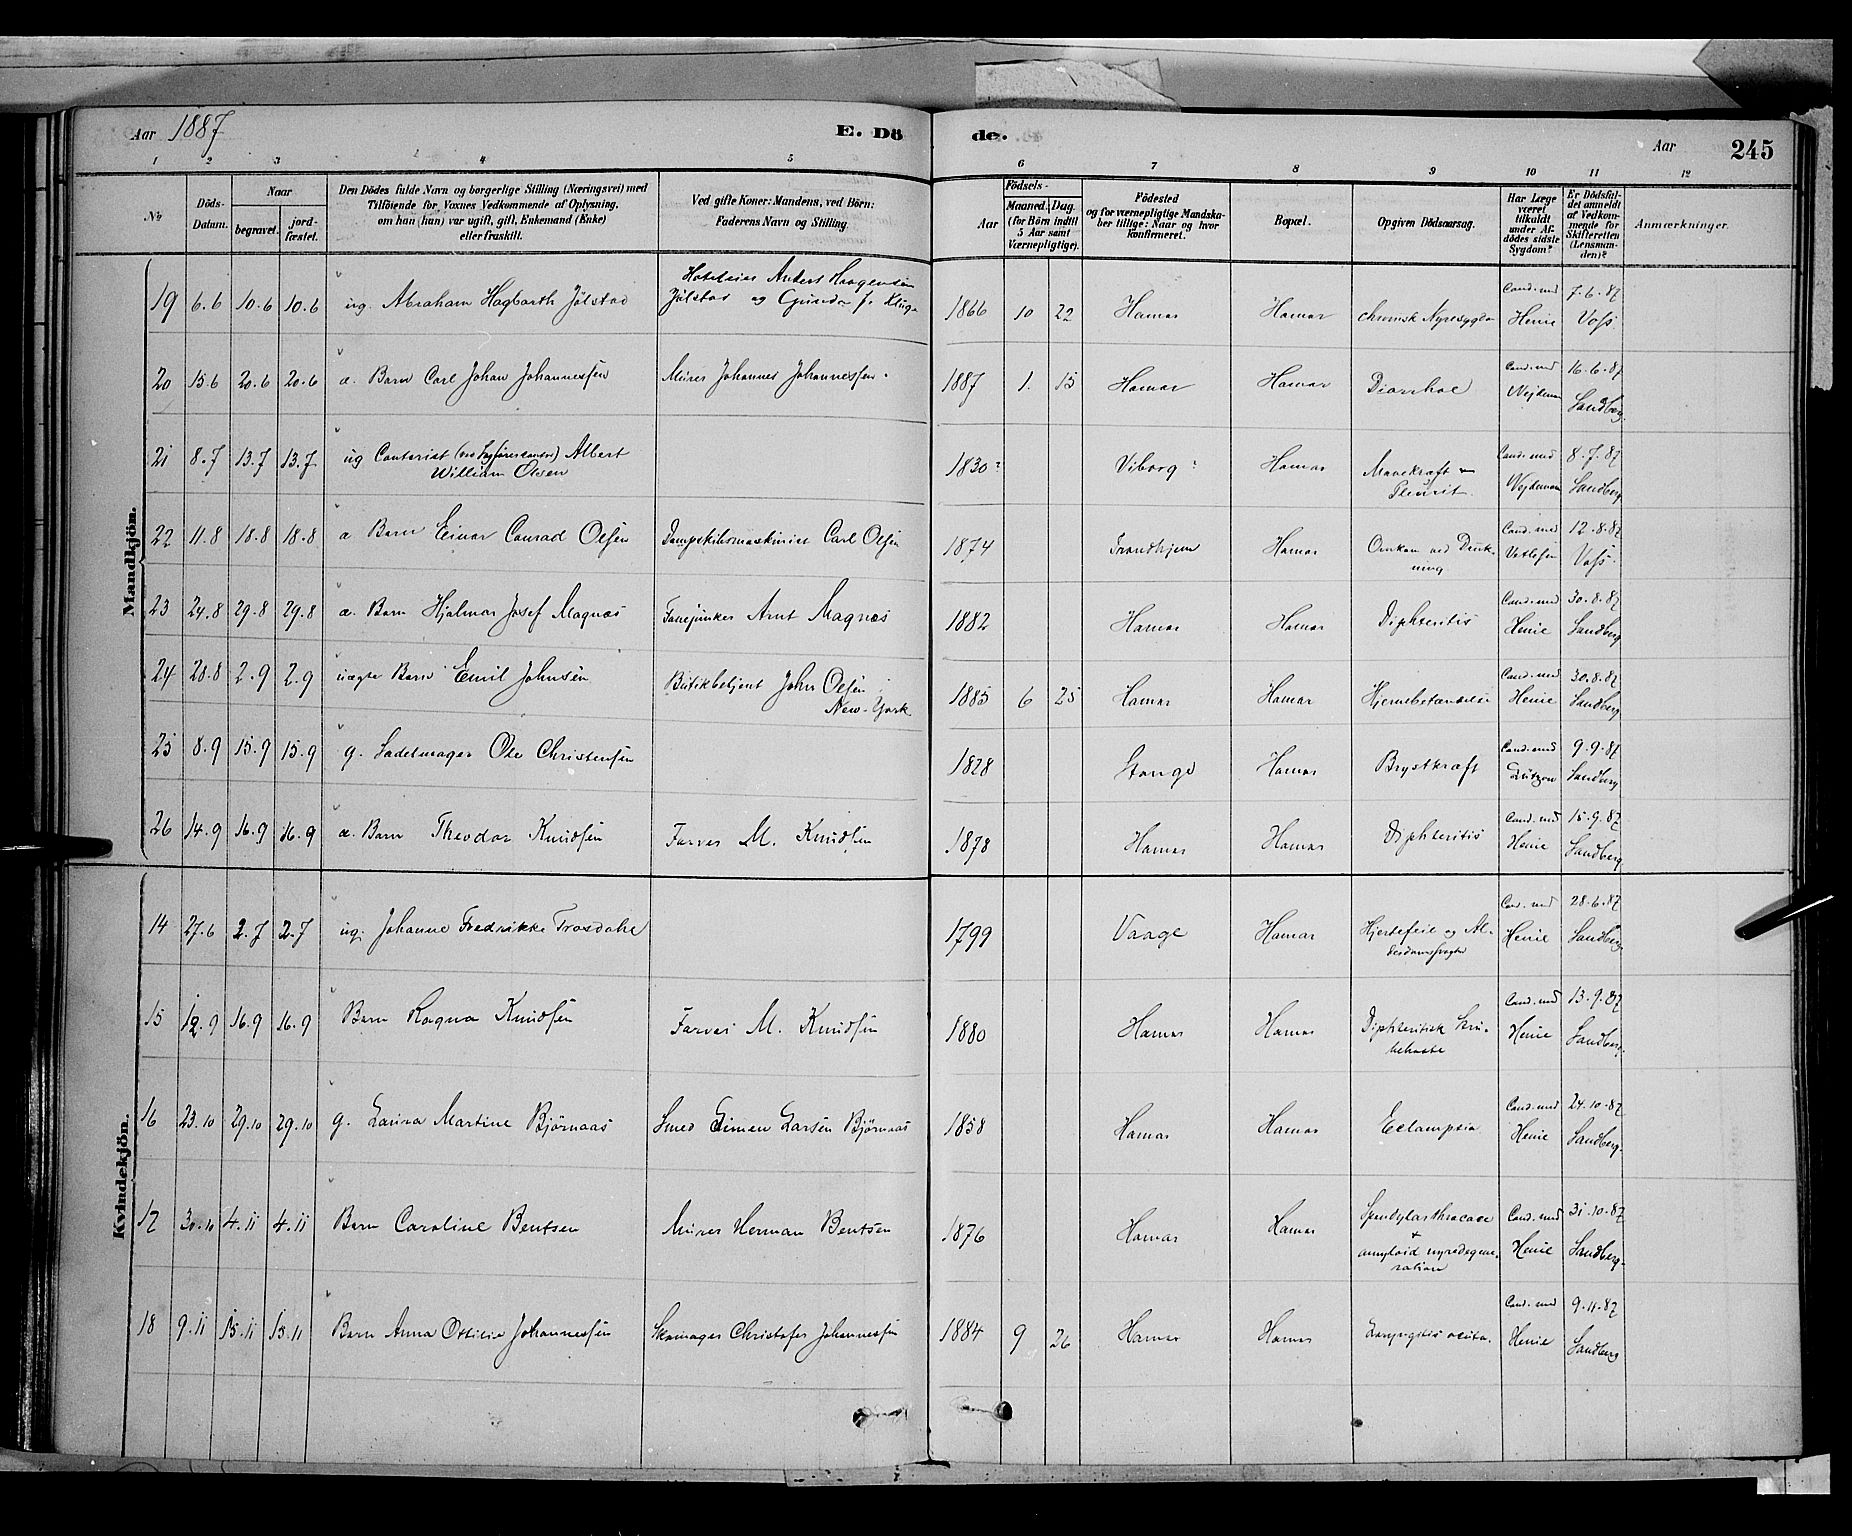 Aar 1887
E. Döde.
Aar
245
1 2 3 4 5 6 7 8 9 10 11 12
No
Döds-Datum.
Naar
begravet.
jordfæstet.
Den Dödes fulde Navn og borgerlige Stilling (Næringsvei) med
Tilföiende for Voxnes Vedkommende af Oplysning,
om han (hun) var ugift, gift, Enkemand (Enke)
eller fraskilt.
Ved gifte Koner: Mandens, ved Börn:
Faderens Navn og Stilling.
Födsels-
Aar
Maaned. Dag.
(for Börn indtil
5 Aar samt
Værnepligtige).
Födested
og for værnepligtige Mandska-
ber tillige: Naar og hvor
konfirmeret.
Bopæl.
Opgiven Dödsaarsag.
Har Læge
været
tilkaldt
under Af-
dödes sidste
Sygdom?
Er Dödsfal-
det anmeldt
af Vedkom-
mende for
Skifteretten
(Lensman-
den)?
Anmærkninger.
Mandkjön.
19 6.6 10.6 10.6 ug. Abraham Hagbarth Jølstad
Anders Haagensen
Jølstad og
1866 10 22 Hamar Hamar chronisk Nyresygdom Cand. med Henie 7.6.87 Voss
20 15.6 20.6 20.6 æ. Barn Carl Johan Johannessen Murer Johannes Johannessen. 1887 1. 15 Hamar Hamar Diarrhoe Cand. med 16.6.87 Sandberg.
21 8.7 13.7 13.7 ug Contorist Albert
William Olsen
1830? Viborg? Hamar Mavekræft
Pleurit. Cand. med 8.7.87 Sandberg
22 11.8 18.8 18.8 æ Barn Einar Conrad Olsen Dampskibsmaskinist Carl Olsen 1874 Trondhjem Hamar Omkom ved Druk-
ning Cand. med 12.8.87 Voss.
23 24.8 29.8 29.8 æ. Barn Hjalmar Josef Magnæs Fanejunker Arnt Magnæs 1882 Hamar Hamar Diphteritis Cand. med Henie 30.8.87 Sandberg
24 28.8 2.9 2.9 uægte Barn Emil Johnsen Butikbetjent John Olsen
New-York
1885 6 25 Hamar Hamar Hjernebetændelse Cand. med Henie 30.8.87 Sandberg
25 8.9 15.9 15.9 g. Sadelmager Ole Christensen 1828 Stange Hamar Brystkræft Cand. med Lützow 9.9.87 Sandberg
26 14.9 16.9 16.9 æ. Barn Theodor Knudsen Farver M. Knudsen 1878 Hamar Hamar Diphteritis Cand. med Henie 15.9.87 Sandberg.
Kvindekjön.
14 27.6 2.7 2.7 ug. Johanne Fredrikke Trosdahl 1799 Vaage Hamar Hjertefeil og Al-
derdomssvaghed Cand. med Henie 28.6.87 Sandberg
15 12.9 16.9 16.9 Barn Ragna Knudsen Farver M. Knudsen 1880 Hamar Hamar Diphteritisk Stru-
behoste Cand. med Henie 13.9.87 Sandberg.
16 23.10 29.10 29.10 g. Laura Martine Bjørnaas Smed Simen Larsen Bjørnaas 1858 Hamar Hamar Eclampsia Cand. med Henie 24.10.87 Sandberg.
17 30.10 4.11 4.11 Barn Caroline Bentsen Murer Herman Bentsen 1876 Hamar Hamar Spondylarthrocace
+
amyloid nyredegene-
ration Cand. med Henie 31.10.87 Sandberg.
18 9.11 15.11 15.11 Barn Anna Ottilie Johannessen Skomager Christofer Johannessen 1884 9 26 Hamar Hamar Laryngitis acuta. Cand. med Henie 9.11.87 Sandberg